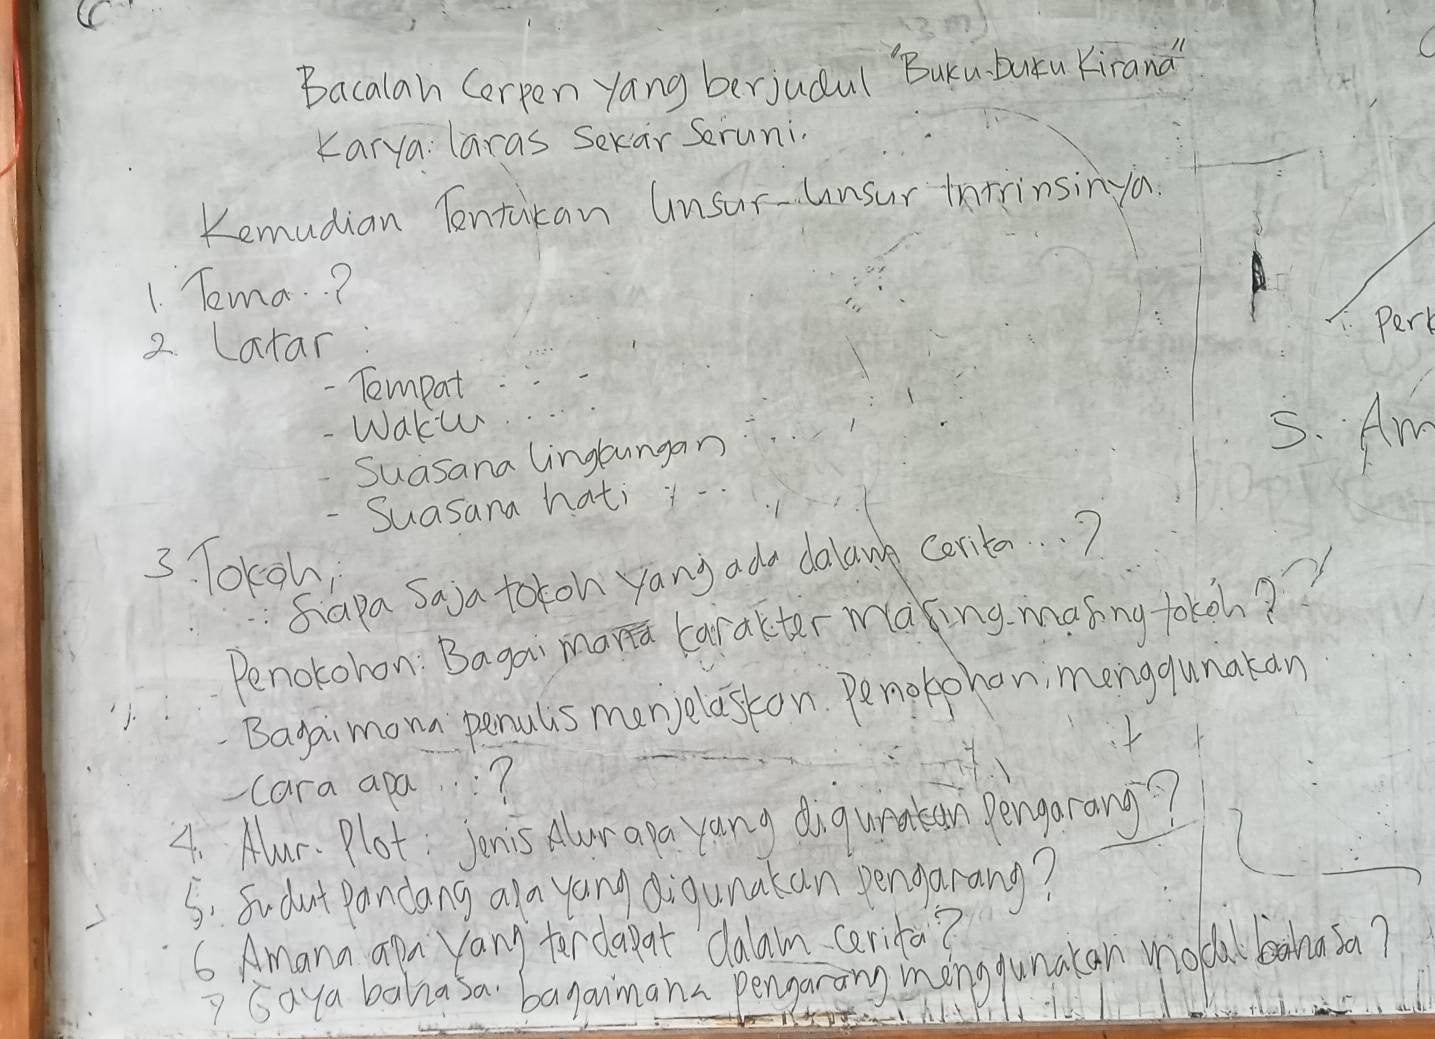 Bacalah Cerpen yang berjudul "Buku-buku Kirana"
Karya: laras Sekar Seruni.
Kemudian Tentukan Unsur-Unsur Intrinsinya.
1. Tema..?
2. Latar :
- Tempat : - -
- Waktu ....
- Suasana lingkungan : ...
- Suasana hati : - ..
3. Tokoh,
Siapa Saja tokoh yang ada dalam Cerita...?
Penokohon: Bagaimana karakter masing-masing tokoh?
- Bagaimana penulis menjelaskan Penokohan, menggunakan
- Cara apa...?
4. Alur. Plot : jenis Alur apa yang digunakan Pengarang?
5. Sudut Pandang apa yang digunakan pengarang?
6 Amana apa yang terdapat dalam cerita?
7 Gaya bahasa. bagaimana pengarang menggunakan modal bahasa?
Perk
5. Am